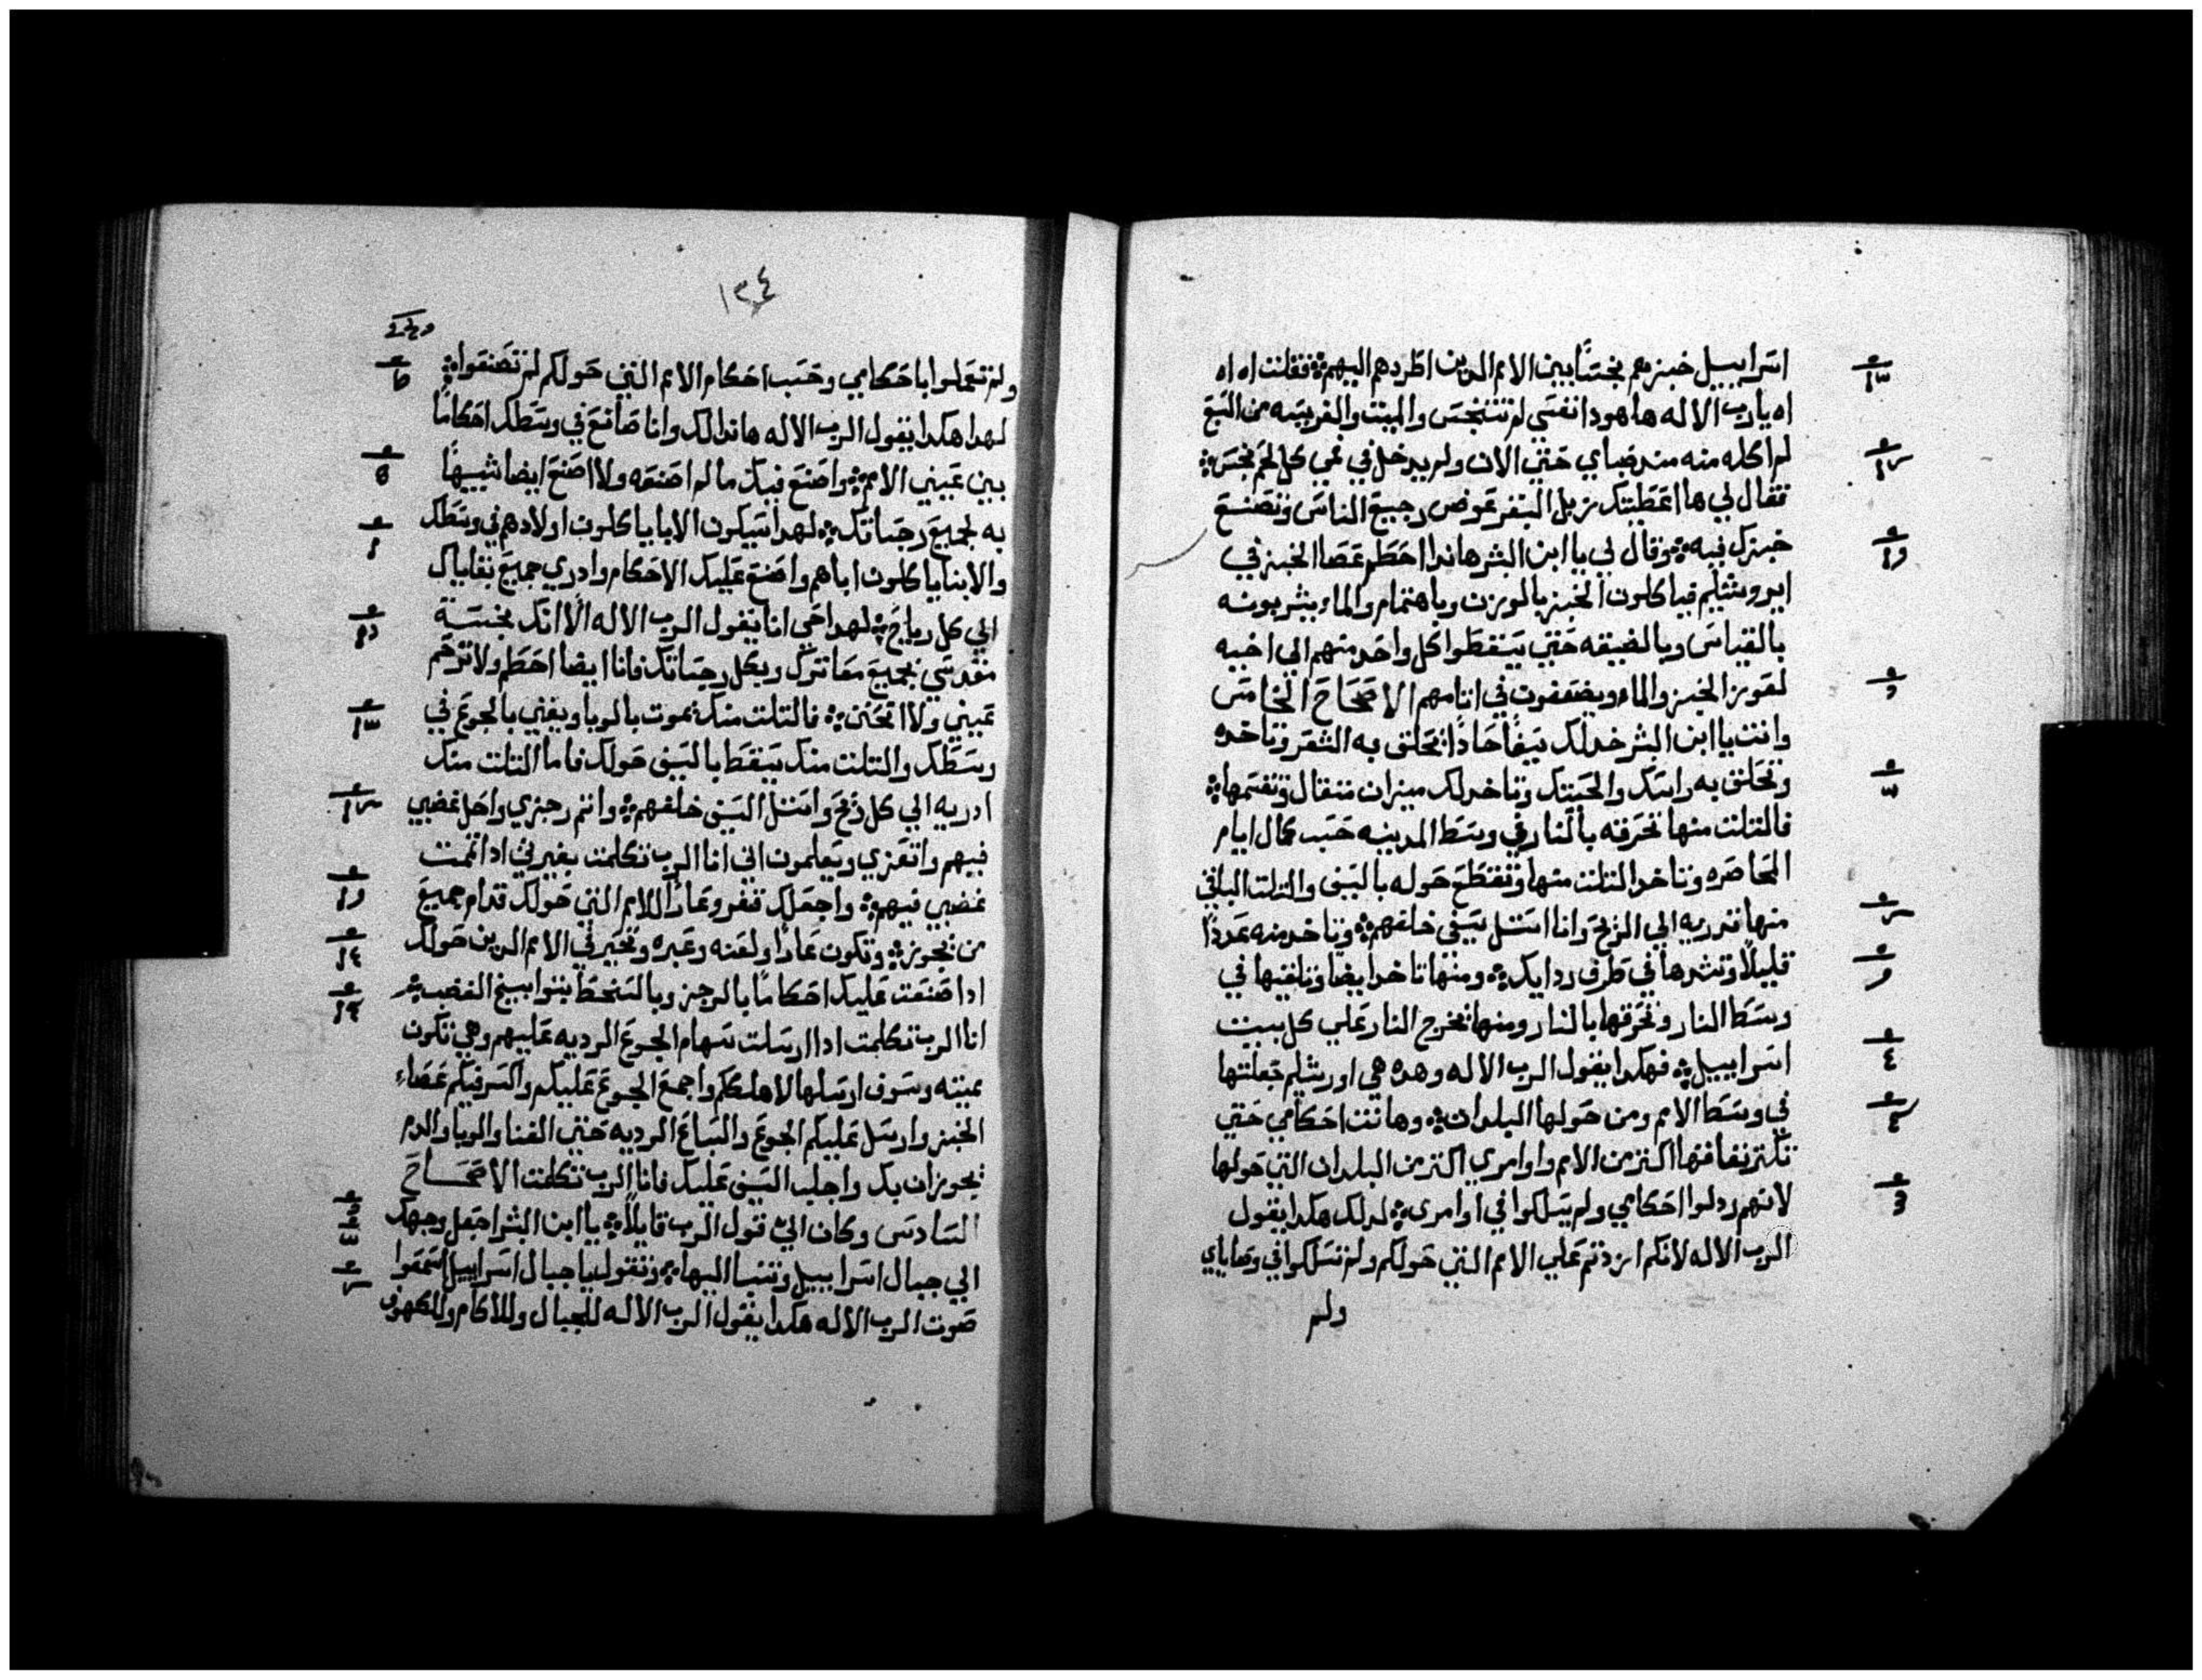 اسراييل خبزهم نجسًا بين الامم الدين اطردهم اليهم ܀ فقلت اه اه
اه يارب الاله ها هودا نفسي لم تتنجس والميت والفريسه من السبع
لم اكله منه مند ضباي حتي الان ولم يدخل في فمي كل لحم نجس ܀
فقال لي ها اعطيتك زبل البقر عوض رجيع الناس وتصنع
خبزك فيه ܀ وقال لي يا ابن البشر هاندا احطم عصا الخبز في
ايروشليم فياكلون الخبز بالوزن وباهتمام والماء يشربونه
بالقياس وبالضيقه حتي يسقطوا كل واحد منهم الي اخيه
لعوز الخبز والماء ويضعفون في اتامهم الاصحاح الخامس
وانت يا ابن البشر خد لك سيفًا حادًا تحلق به الشعر وتاخده
وتحلق به راسك والحيتك وتاخد لك ميزان متقال وتقسمها ܀
فالتلت منها تحرقه بالنار في وسط المدينه حسب كمال ايام
المحاصره وتاخد التلت منها وتقطع حوله بالسيف والتلت الباقي
منها تدريه الي الريح وانا استل سيفي خلفهم ܀ وتاخد منه عددًا
قليلًا وتشدها في طرف ردايك ܀ ومنها تاخد ايضا وتلقيها في
وسط النار وتحرقها بالنار ومنها تخرج النار علي كل بييت
اسراييل ܀ فهكدا يقول الرب الاله وهده هي اورشلم جعلتها
في وسط الامم ومن حولها البلدان ܀ وهانت احكامي حتي
تكتر نفاقها اكتر من الامم واوامري اكتر من البلدان التي حولها
لانهم ردلوا احكامي ولم يسلكوا في اوامري ܀ لدلك هكدا يقول
الرب الاله لانكم ازددتم علي الامم التي حولكم ولم تسلكوا في وصاياي
ولم
١٣٤
ولم تعملوا باحكامي وحسب احكام الامم التي حولكم لم تصنعوا ܀
لهدا هكدا يقول الرب الاله هاندا لك وانا صانع في وسطك احكامًا
بين عيني الامم ܀ واصنع فيك ما لم اصنعه ولا اصنع ايضا شبيهًا
به لجميع رجساتك ܀ لهدا سيكون الابا ياكلون اولادهم في وسطك
والابنا ياكلون اباهم واصنع عليك الاحكام وادري جميع بقاياك
الي كل رياح ܀ لهدا حي انا يقول الرب الاله الا انك نجستة
مقدسي بجميع معاترك وبكل رجساتك فانا ايضا احطم ولا ترحم
عيني ولا اتحنن ܀ فالتلت منك يموت بالوبا ويفني بالجوع في
وسطك والتلت منك يسقط بالسيف حولك فاما التلت منك
ادريه الي كل ريح واستل السيف خلفهم ܀ واتم رجزي واحل غضبي
فيهم واتعزي ويعلمون اني انا الرب تكلمت بغيرتي ادا تممت
غضبي فيهم ܀ واجعلك قفر وعارًا للامم التي حولك قدام جميع
من يجوز ܀ وتكون عارًا ولعنه وعبره وتحير في الامم الدين حولك
ادا صنعت عليك احكامًا بالرجز وبالسخط بتوابيخ الغضب ܀
انا الرب تكلمت ادا ارسلت سهام الجوع الرديه عليهم وهي تكون
مميته وسوف ارسلها لاهلككم واجمع الجوع عليكم واكسر فيكم عصاء
الخبز وارسل عليكم الجوع والسباع الرديه حتي الفنا والوبا والدم
يجوزان بك واجلب السيف عليك فانا الرب تكلمت الاصحاح
السادس وكان اليّ قول الرب قايلًا ܀ يا ابن البشر اجعل وجهك
الي جبال اسراييل وتنبا اليها ܀ وتقول يا جبال اسراييل اسمعوا
صوت الرب الاله هكدا يقول الرب الاله للجبال وللاكام وللكهوف